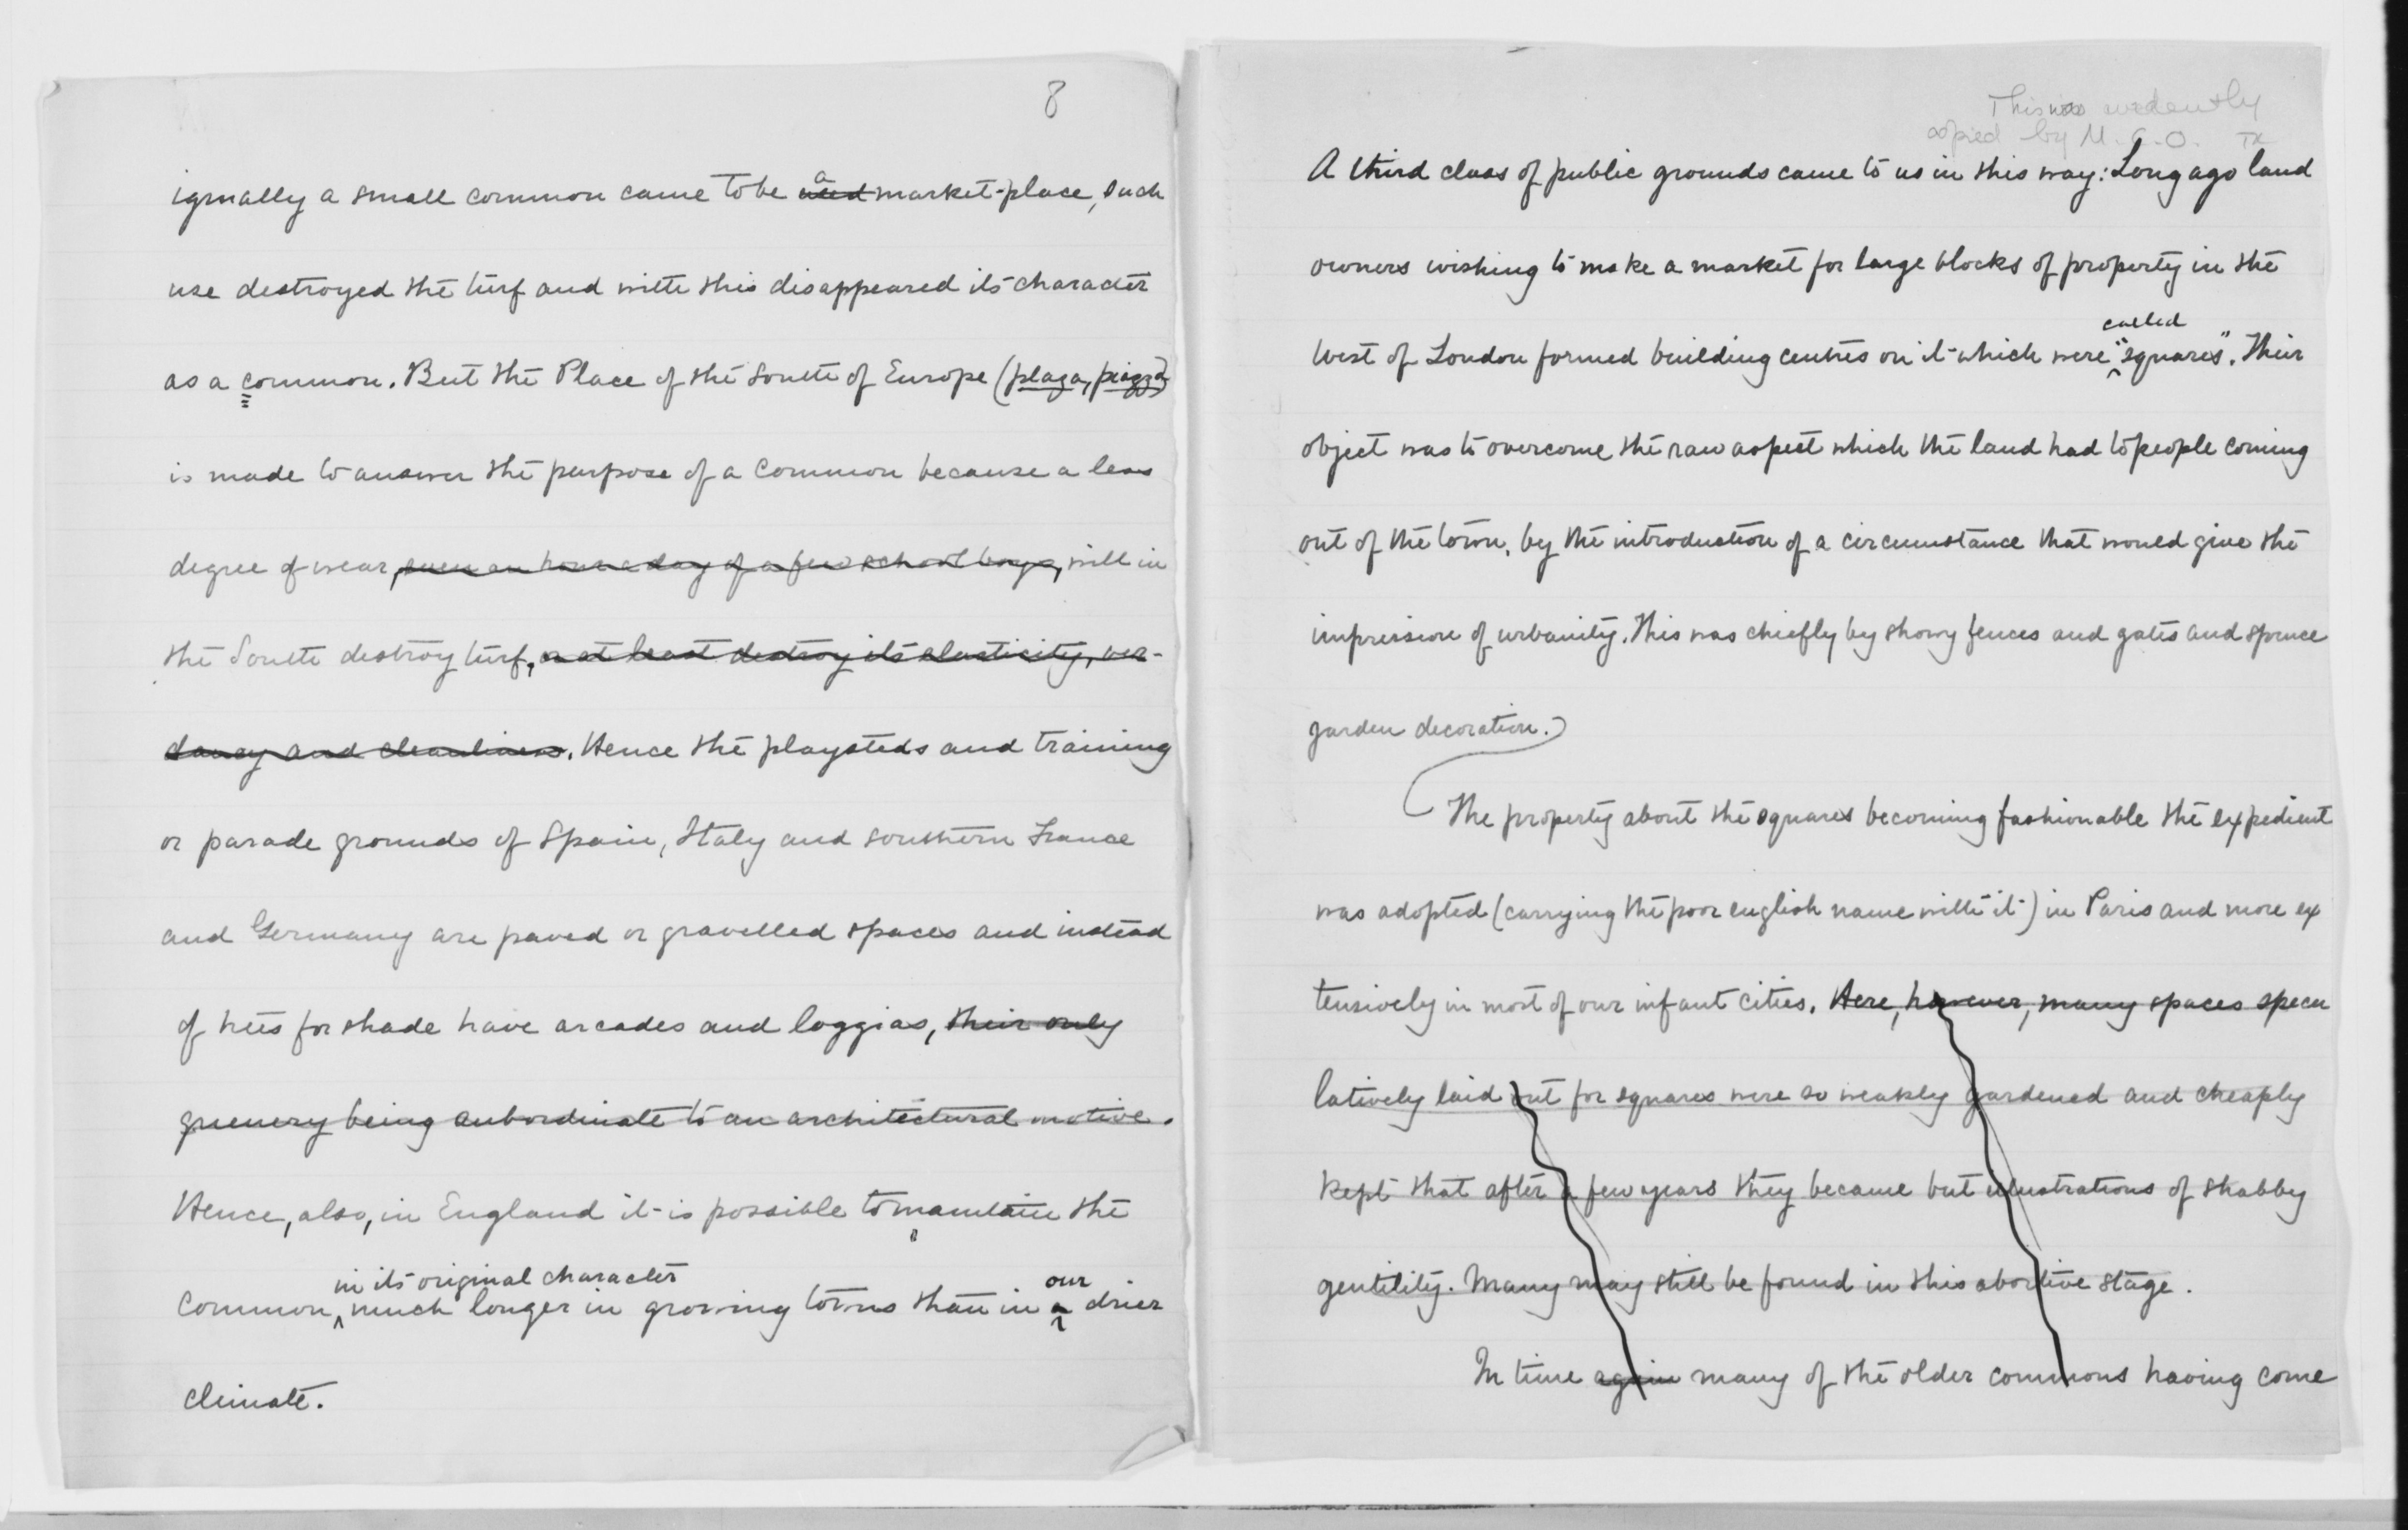 8
iginally a small common came to be a used market-place, such
use destroyed the turf and with this disappeared its character
as a common. But the Place of the South of Europe (plaza, piazza)
is made to answer the purpose of a common because a less
degree of wear, even an hour a day of a few school boys, will in
the South destroy turf, or at least destroy its elasticity, ver-
dancy and cleanliness. Hence the playsteds and training
or parade grounds of Spain, Italy and southern France
and Germany are paved or gravelled spaces and instead
of trees for shade have arcades and loggias, their only
greenery being subordinate to an architectural motive.
Hence, also, in England it is possible to maintain the
in its original character our
common, much longer in growing towns than in a drier
climate.
This was evidently
copied by M. C. O.
A third class of public grounds came to us in this way: Long ago land
owners wishing to make a market for large blocks of property in the
called
West of London formed building centres on it which were "squares". Their
object was to overcome the raw aspect which the land had to people coming
out of the town, by the introduction of a circumstance that would give the
impression of urbanity. This was chiefly by showy fences and gates and spruce
garden decoration.
The property about the squares becoming fashionable the expedient
was adopted (carrying the poor english name with it) in Paris and more ex
tensively in most of our infant cities. Here, however, many spaces specu
latively laid out for squares were so weakly gardened and cheaply
kept that after a few years they became but illustrations of shabby
gentility. Many may still be found in this abortive stage.
In time again many of the older commons having come